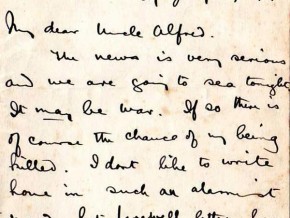 My dear Uncle Alfred.
The news is very serious
and we are going to sea tonight
It may be war. If so there is
of course the chance of my being
killed. I dont like to write
home in such an alarmist